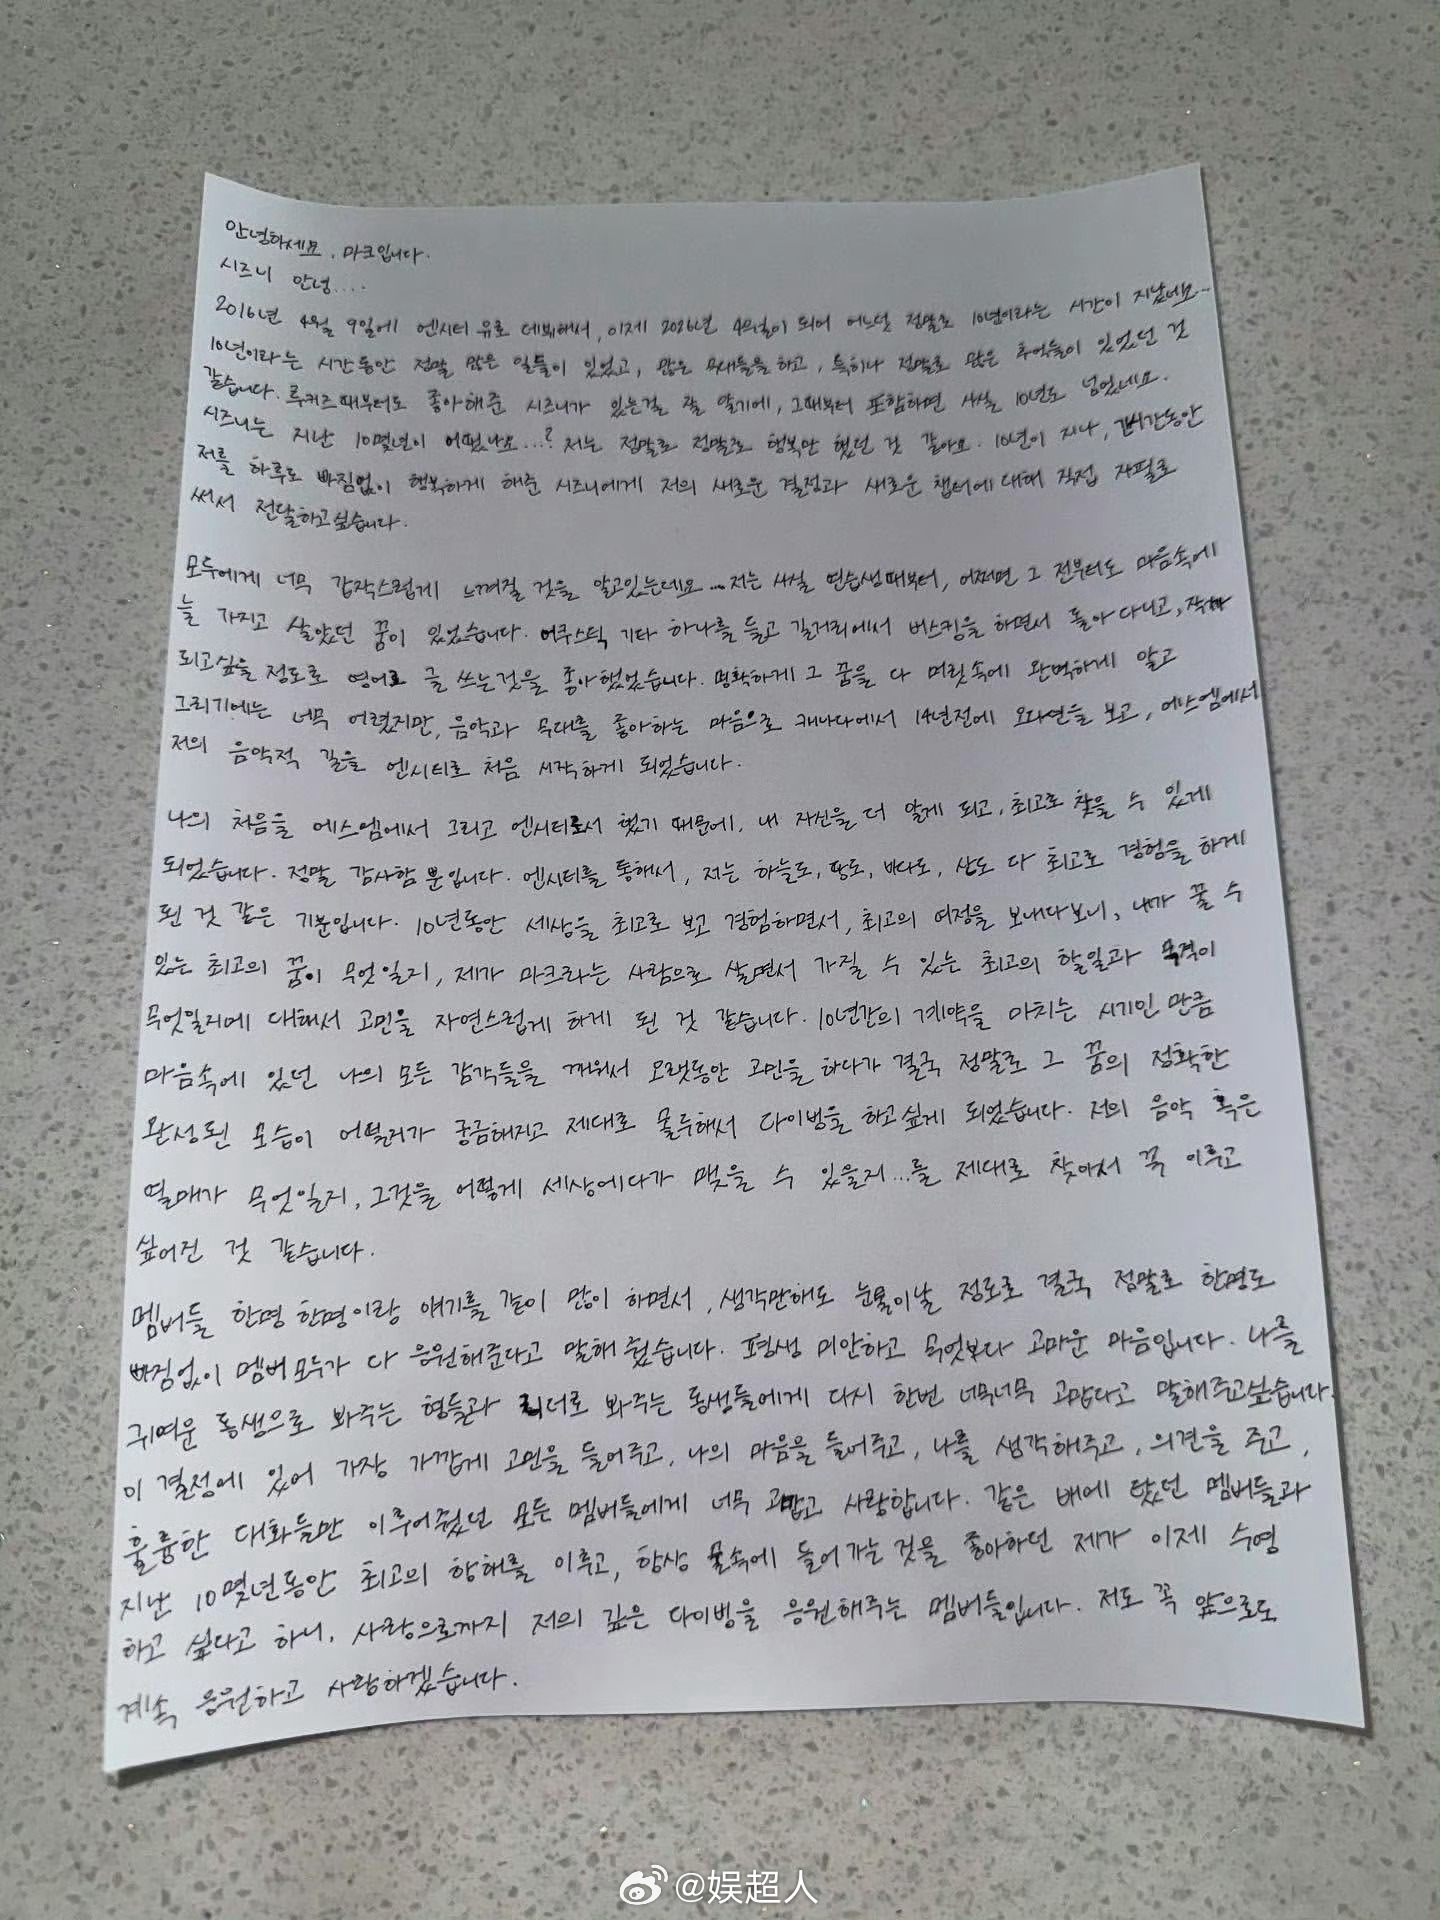 안녕하세요, 마크입니다.
시즈니 안녕....
2016년 4월 9일에 엔시티 유로 데뷔해서, 이제 2026년 4월이 되어 어느덧 정말로 10년이라는 시간이 지났네요...
10년이라는 시간동안 정말 많은 일들이 있었고, 많은 무대들을 하고, 특히나 정말로 많은 추억들이 있었던 것
같습니다. 루키즈때부터도 좋아해준 시즈니가 있는걸 잘 알기에, 그때부터 포함하면 사실 10년도 넘었네요.
시즈니는 지난 10몇년이 어땠나요...? 저는 정말로 정말로 행복만 했던 것 같아요. 10년이 지나, 긴시간동안
저를 하루도 빠짐없이 행복하게 해준 시즈니에게 저의 새로운 결정과 새로운 챕터에 대해 직접 자필로
써서 전달하고싶습니다.
모두에게 너무 갑작스럽게 느껴질 것을 알고있는데요... 저는 사실 연습생때부터, 어쩌면 그 전부터도 마음속에
늘 가지고 살았던 꿈이 있었습니다. 어쿠스틱 기타 하나를 들고 길거리에서 버스킹을 하면서 돌아다니고, 작가
되고싶을 정도로 영어로 글 쓰는것을 좋아했었습니다. 명확하게 그 꿈을 다 머릿속에 완벽하게 알고
그리기에는 너무 어렸지만, 음악과 무대를 좋아하는 마음으로 캐나다에서 14년전에 오디션을 보고, 에스엠에서
저의 음악적 길을 엔시티로 처음 시작하게 되었습니다.
나의 처음을 에스엠에서 그리고 엔시티로서 했기 때문에, 내 자신을 더 알게 되고, 최고로 찾을 수 있게
되었습니다. 정말 감사함 뿐입니다. 엔시티를 통해서, 저는 하늘도, 땅도, 바다도, 산도 다 최고로 경험을 하게
된 것 같은 기분입니다. 10년동안 세상을 최고로 보고 경험하면서, 최고의 여정을 보내다보니, 내가 꿀 수
있는 최고의 꿈이 무엇일지, 제가 마크라는 사람으로 살면서 가질 수 있는 최고의 할일과 목적이
무엇일지에 대해서 고민을 자연스럽게 하게 된 것 같습니다. 10년간의 계약을 마치는 시기인 만큼
마음속에 있던 나의 모든 감각들을 깨워서 오랫동안 고민을 하다가 결국 정말로 그 꿈의 정확한
완성된 모습이 어떨지가 궁금해지고 제대로 몰두해서 다이빙을 하고싶게 되었습니다. 저의 음악 혹은
열매가 무엇일지, 그것을 어떻게 세상에다가 맺을 수 있을지...를 제대로 찾아서 꼭 이루고
싶어진 것 같습니다.
멤버들 한명 한명이랑 얘기를 같이 많이 하면서, 생각만해도 눈물이날 정도로 결국 정말로 한명도
빠짐없이 멤버 모두가 다 응원해준다고 말해 줬습니다. 평생 미안하고 무엇보다 고마운 마음입니다. 나를
귀여운 동생으로 봐주는 형들과 리더로 봐주는 동생들에게 다시 한번 너무너무 고맙다고 말해주고싶습니다.
이 결정에 있어 가장 가깝게 고민을 들어주고, 나의 마음을 들어주고, 나를 생각해주고, 의견을 주고,
훌륭한 대화들만 이루어줬던 모든 멤버들에게 너무 고맙고 사랑합니다. 같은 배에 탔던 멤버들과
지난 10몇년동안 최고의 항해를 이루고, 항상 물속에 들어가는것을 좋아하던 제가 이제 수영
하고 싶다고 하니, 사랑으로까지 저의 깊은 다이빙을 응원해주는 멤버들입니다. 저도 꼭 앞으로도
계속 응원하고 사랑하겠습니다.
@娱超人